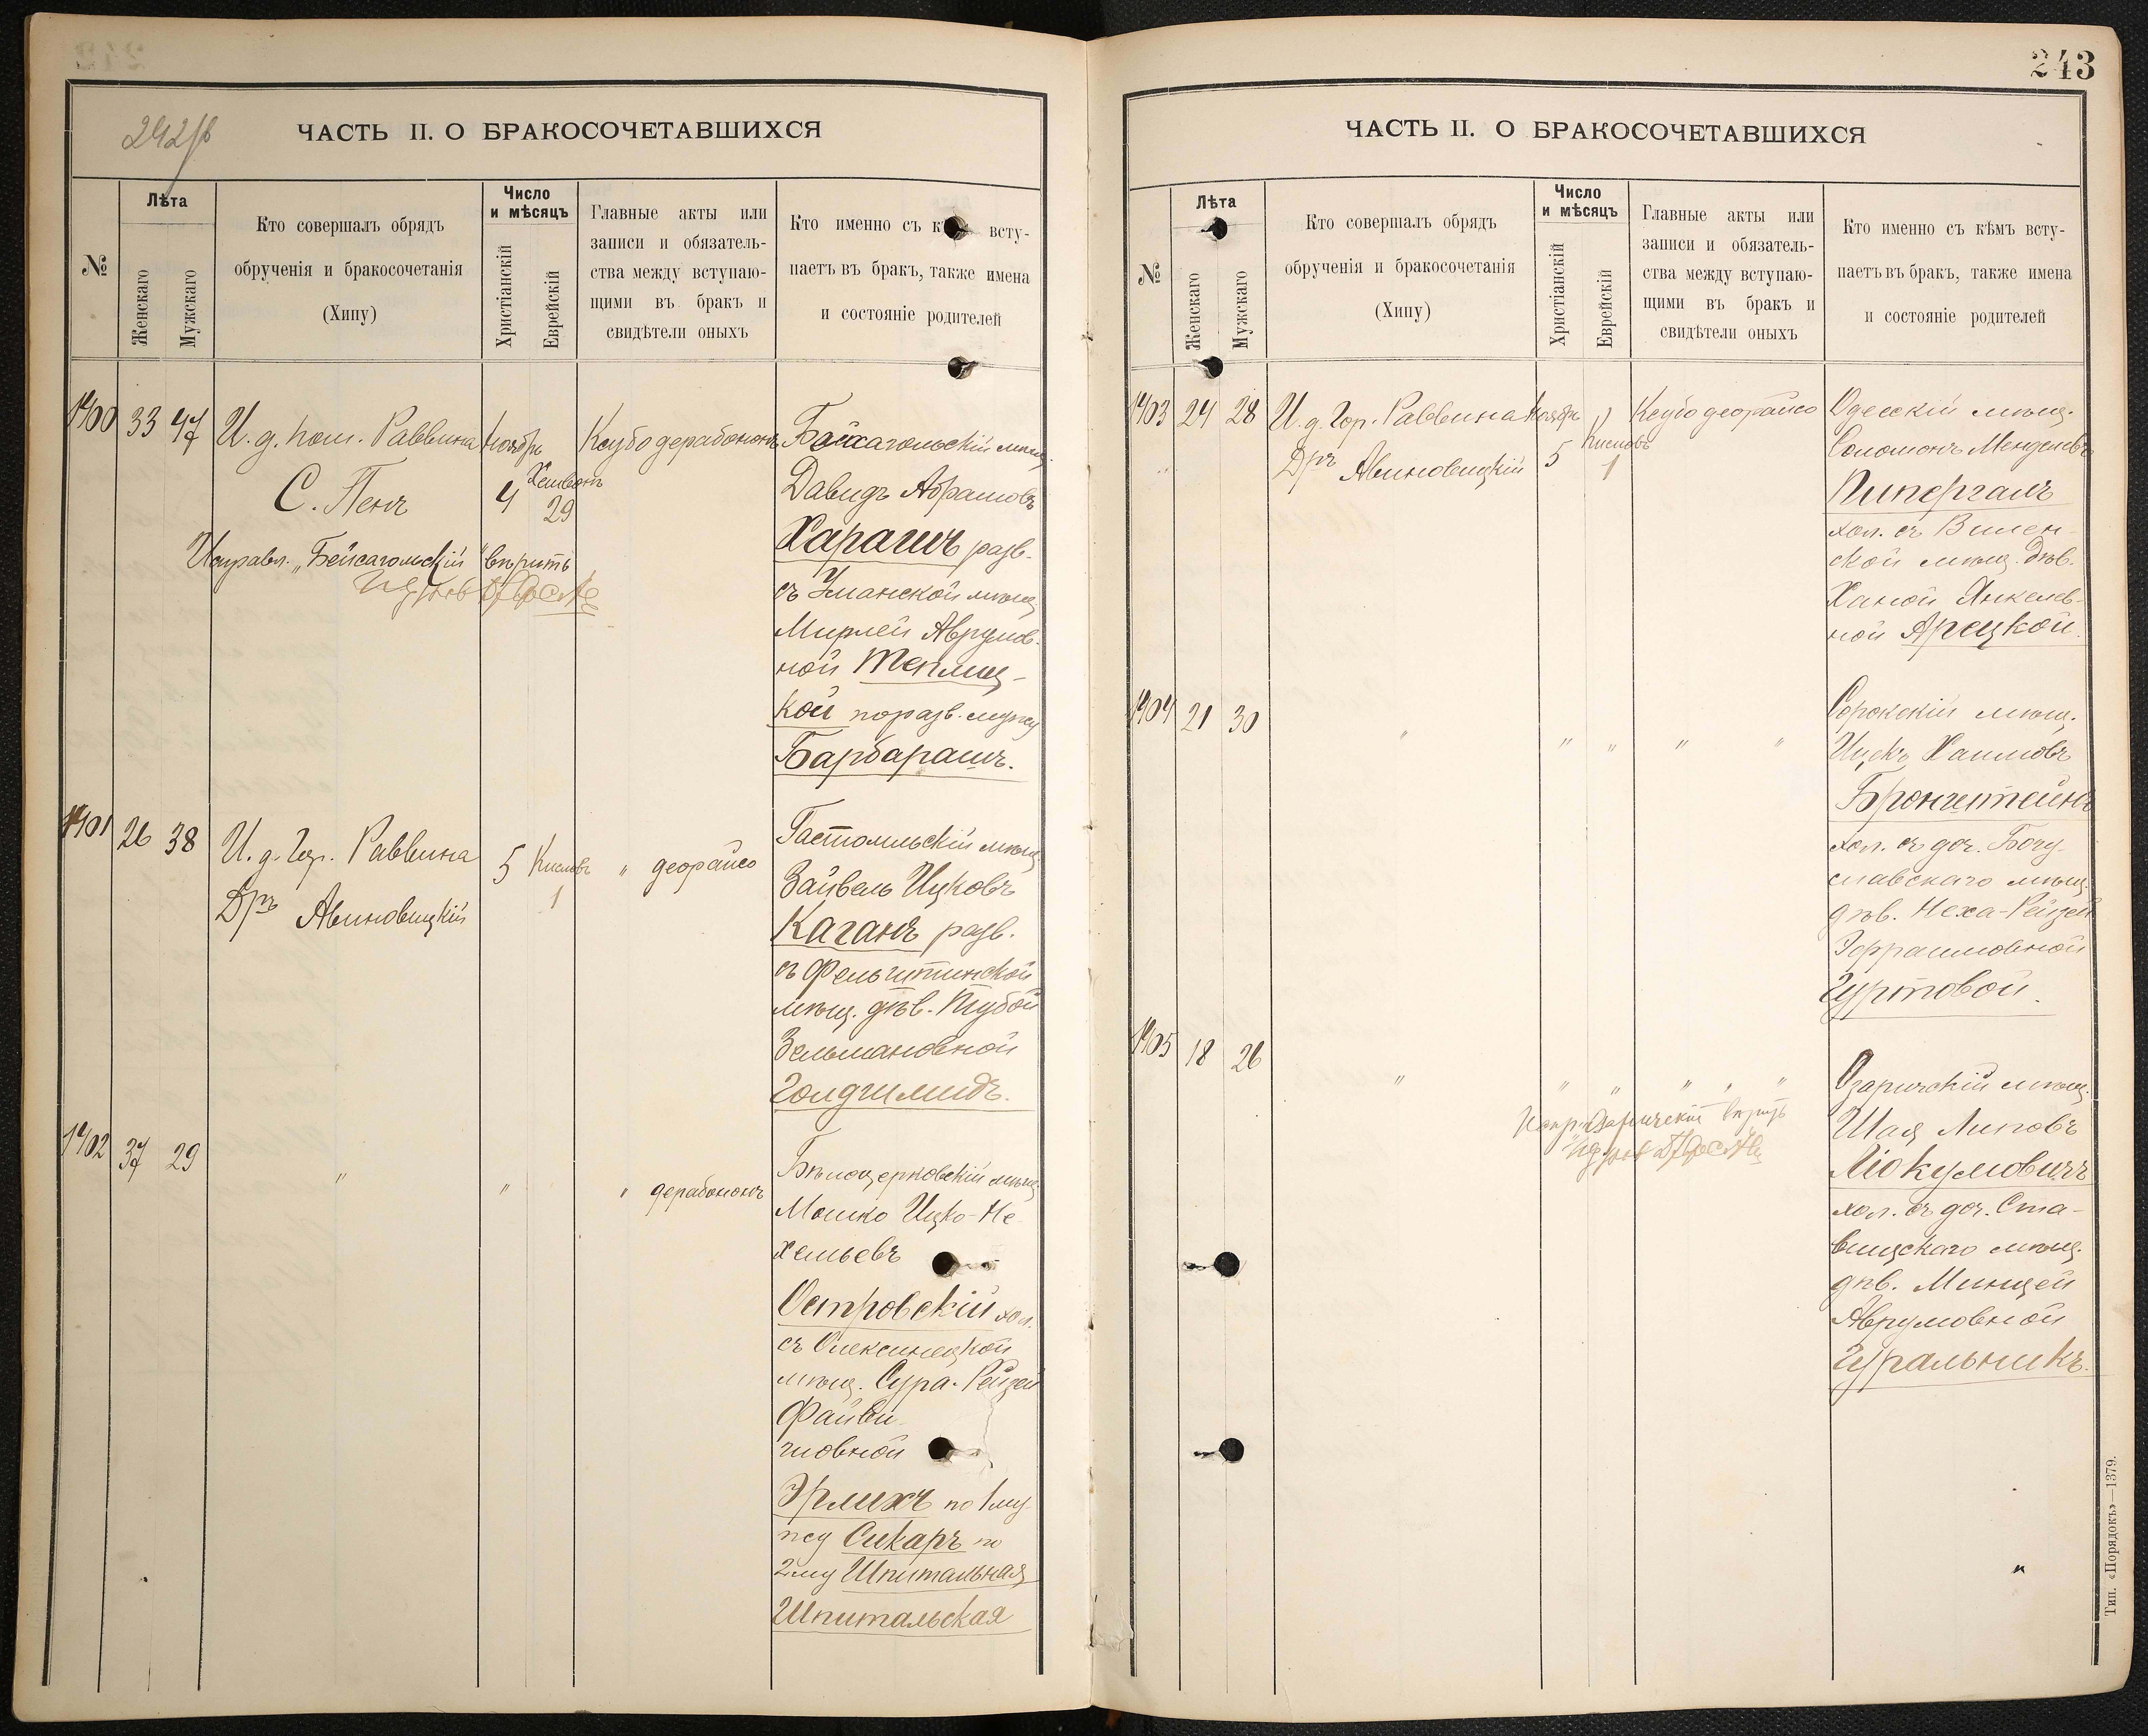 242/б
ЧАСТЬ II. О БРАКОСОЧЕТАВШИХСЯ
№
Лѣта
Женскаго
Мужскаго
Кто совершалъ обрядъ
обрученія и бракосочетанія
(Хипу)
Число
и мѣсяцъ
Христіанскій
Еврейскій
Главные акты или
записи и обязатель-
ства между вступаю-
щими въ бракъ и
свидѣтели оныхъ
Кто именно съ к всту-
паетъ въ бракъ, также имена
и состояніе родителей
1400 33 47
И. д. пом. Раввина
С. Пенъ
Ноябрь
4
Хешвонъ
29
Ксубо дерабононъ
Байсагольскій мѣщ.
Давидъ Абрамовъ
Харашъ разв.
съ Уманской мѣщ.
Мирлей Аврумов-
ной Теплиц-
кой по разв. мужу
Барбарашъ.
Исправл. „Бейсагольскій" вѣрить
1401 26 38
И. д. Гор. Раввина
Дръ Авиновицкій
5 Кислевъ
1
" деорайсо
Гастомльскій мѣщ.
Зайвель Ицковъ
Каганъ разв.
съ Фельштинской
мѣщ. дѣв. Тубой
Зельмановной
Голдшмидъ.
1402 37 29
"
"
" дерабононъ
Бѣлоцерковскій мѣщ.
Мошко Ицко-Не-
хемьевъ
Островскій хол.
съ Олексинецкой
мѣщ. Сура-Рейзей
Файви-
шовной
Эрлихъ по 1 му-
жу Сикаръ по
2 му Шпитальная
Шпитальская
243
ЧАСТЬ II. О БРАКОСОЧЕТАВШИХСЯ
№
Лѣта
Женскаго
Мужскаго
Кто совершалъ обрядъ
обрученія и бракосочетанія
(Хипу)
Число
и мѣсяцъ
Христіанскій
Еврейскій
Главные акты или
записи и обязатель-
ства между вступаю-
щими въ бракъ и
свидѣтели оныхъ
Кто именно съ кѣмъ всту-
паетъ въ бракъ, также имена
и состояніе родителей
1403 24 28
И. д. Гор. Раввина
Дръ Авиновицкій
Ноябрь
5
Кислевъ
1
Ксубо деорайсо
Одесскій мѣщ.
Соломонъ Менделевъ
Пипергалъ
хол. съ Вилен-
ской мѣщ. дѣв.
Ханой Янкелев-
ной Арецкой.
1404 21 30
" " " " "
Сорокскій мѣщ.
Ицекъ Хаимовъ
Бронштейнъ
хол. съ доч. Богу-
славскаго мѣщ.
дѣв. Неха-Рейзей
Эфраимовной
Гуртовой.
1405 18 26
" " " " " "
Озаричскій мѣщ.
Шая Липовъ
Мокуловичъ
хол. съ доч. Ста-
вищскаго мѣщ.
дѣв. Минцей
Аврумовной
Гуральникъ.
Испр. „Озаричскій" вѣрить
Тип. «Порядокъ»—1379.